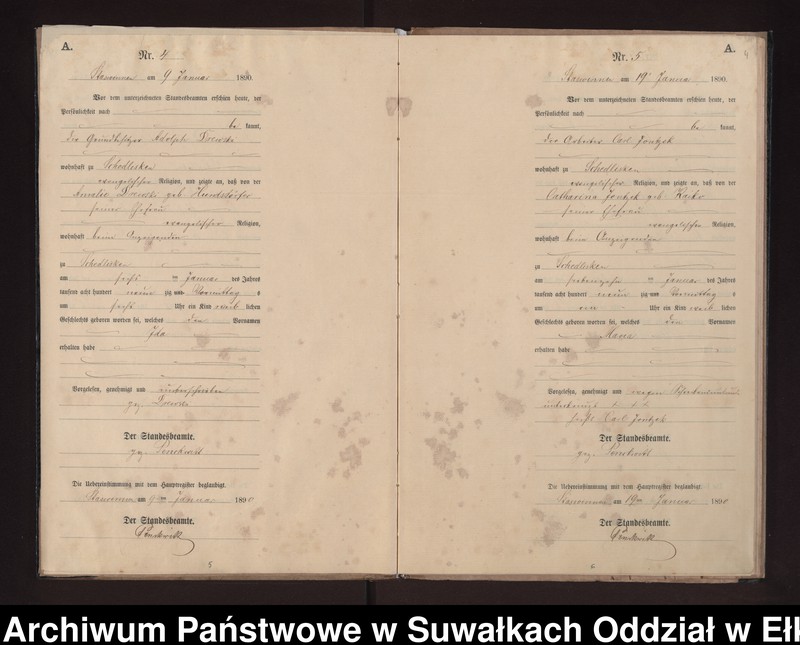 A.
Nr. 4
am 9 Januar 1890.
Vor dem unterzeichneten Standesbeamten erschien heute, der
Persönlichkeit nach
be kannt,
der Grundbesitzer Adolph
wohnhaft zu Schedlisken
evangelischer Religion, und zeigte an, daß von der
Amalie geb
seiner Ehefrau
evangelischer Religion,
wohnhaft beim Anzeigenden
zu Schedlisken
am sechs ten Januar des Jahres
tausend acht hundert neun zig und Vormittag s
um sechs Uhr ein Kind weib lichen
Geschlechts geboren worden sei, welches den Vornamen
Ida
erhalten habe
Vorgelesen, genehmigt und unterschrieben
gez.
Der Standesbeamte.
gez.
Die Uebereinstimmung mit dem Hauptregister beglaubigt.
am 9ten Januar 1890
Der Standesbeamte.
5
A.
Nr. 5
am 19 Januar 1890.
Vor dem unterzeichneten Standesbeamten erschien heute, der
Persönlichkeit nach
be kannt,
der Arbeiter Carl Jontzek
wohnhaft zu Schedlisken
evangelischer Religion, und zeigte an, daß von der
Catharina Jontzek geb
seiner Ehefrau
evangelischer Religion,
wohnhaft beim Anzeigenden
zu Schedlisken
am siebenzehn ten Januar des Jahres
tausend acht hundert neun zig und Vormittag s
um ein Uhr ein Kind weib lichen
Geschlechts geboren worden sei, welches den Vornamen
Maria
erhalten habe
Vorgelesen, genehmigt und wegen
Karl Jontzek
Der Standesbeamte.
gez.
Die Uebereinstimmung mit dem Hauptregister beglaubigt.
am 19ten Januar 1890
Der Standesbeamte.
Archiwum Państwowe w Suwałkach Oddział w Ełk